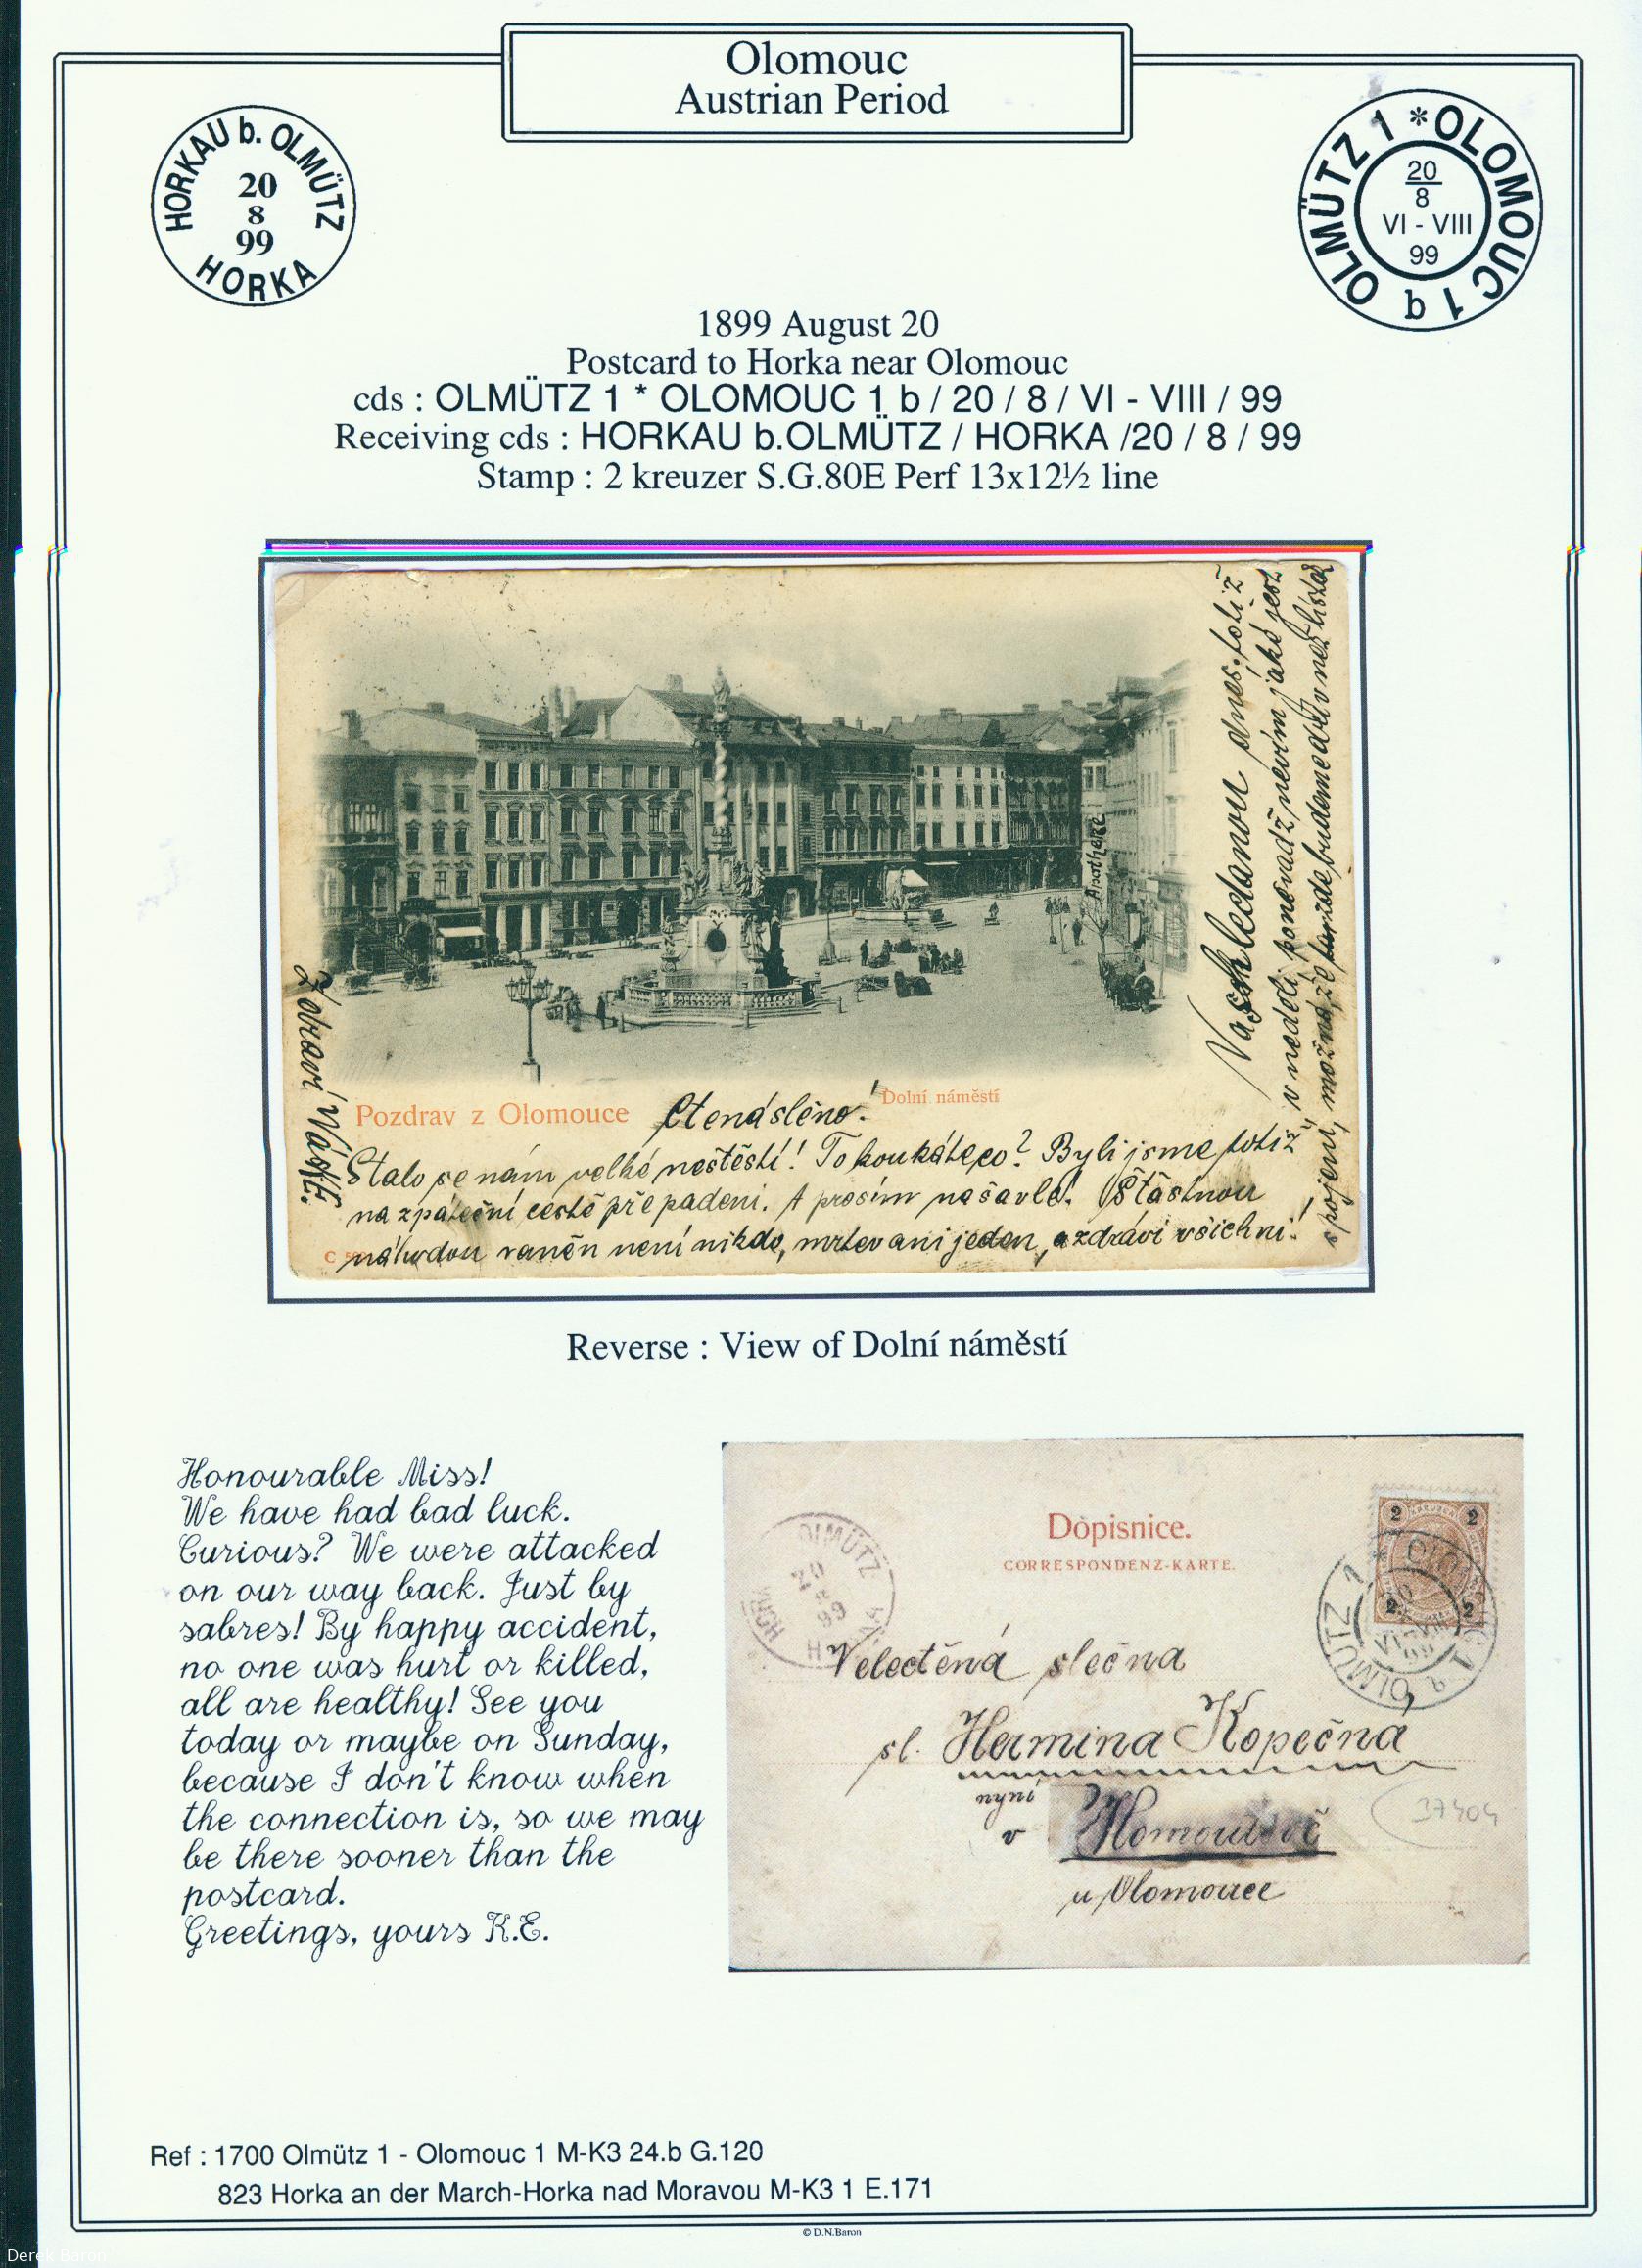 Olomouc
Austrian Period
HORKAU b. OLMÜTZ
20
8
99
HORKA
OLMÜTZ 1 * OLOMOUC 1 b
20
8
VI - VIII
99
1899 August 20
Postcard to Horka near Olomouc
cds : OLMÜTZ 1 * OLOMOUC 1 b / 20 / 8 / VI - VIII / 99
Receiving cds : HORKAU b.OLMÜTZ / HORKA /20 / 8 / 99
Stamp : 2 kreuzer S.G.80E Perf 13x12½ line
Apotheke
Pozdrav z Olomouce
Dolní náměstí
Ctená slečno!
Stalo se nám velké neštěstí! To koukáte co? Byli jsme totiž
na zpáteční cestě přepadeni. A prosím na šavle! Šťastnou
náhodou raněn není nikdo, mrtev ani jeden, a zdrávi všichni!
Na shledanou dnes, totiž
v neděli, poněvadž nevím jaké jest
spojení, možná, že budeme dřív než lístek
Zdraví Váš K.E.
Reverse : View of Dolní náměstí
Honourable Miss!
We have had bad luck.
Curious? We were attacked
on our way back. Just by
sabres! By happy accident,
no one was hurt or killed,
all are healthy! See you
today or maybe on Sunday,
because I don't know when
the connection is, so we may
be there sooner than the
postcard.
Greetings, yours K.E.
Dopisnice.
CORRESPONDENZ-KARTE.
2 2
2 2
OLMÜTZ 1
OLMÜTZ
Velectěná slečna
sl. Hermina Kopečná
nyní
v
u Olomouce
37404
Ref : 1700 Olmütz 1 - Olomouc 1 M-K3 24.b G.120
823 Horka an der March-Horka nad Moravou M-K3 1 E.171
© D.N.Baron
Derek Baron